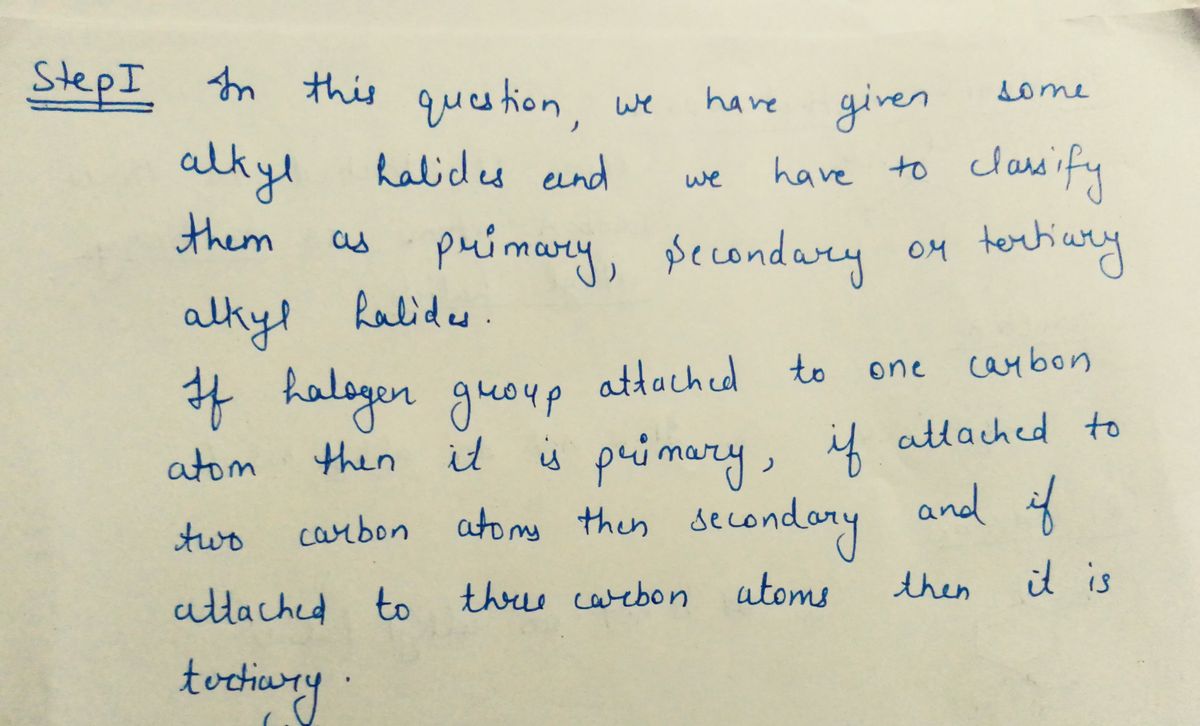 Step I In this question, we have given some
alkyl halides and we have to classify
them as primary, secondary or tertiary
alkyl halides.
If halogen group attached to one carbon
atom then it is primary, if attached to
two carbon atoms then secondary and if
attached to three carbon atoms then it is
tertiary.